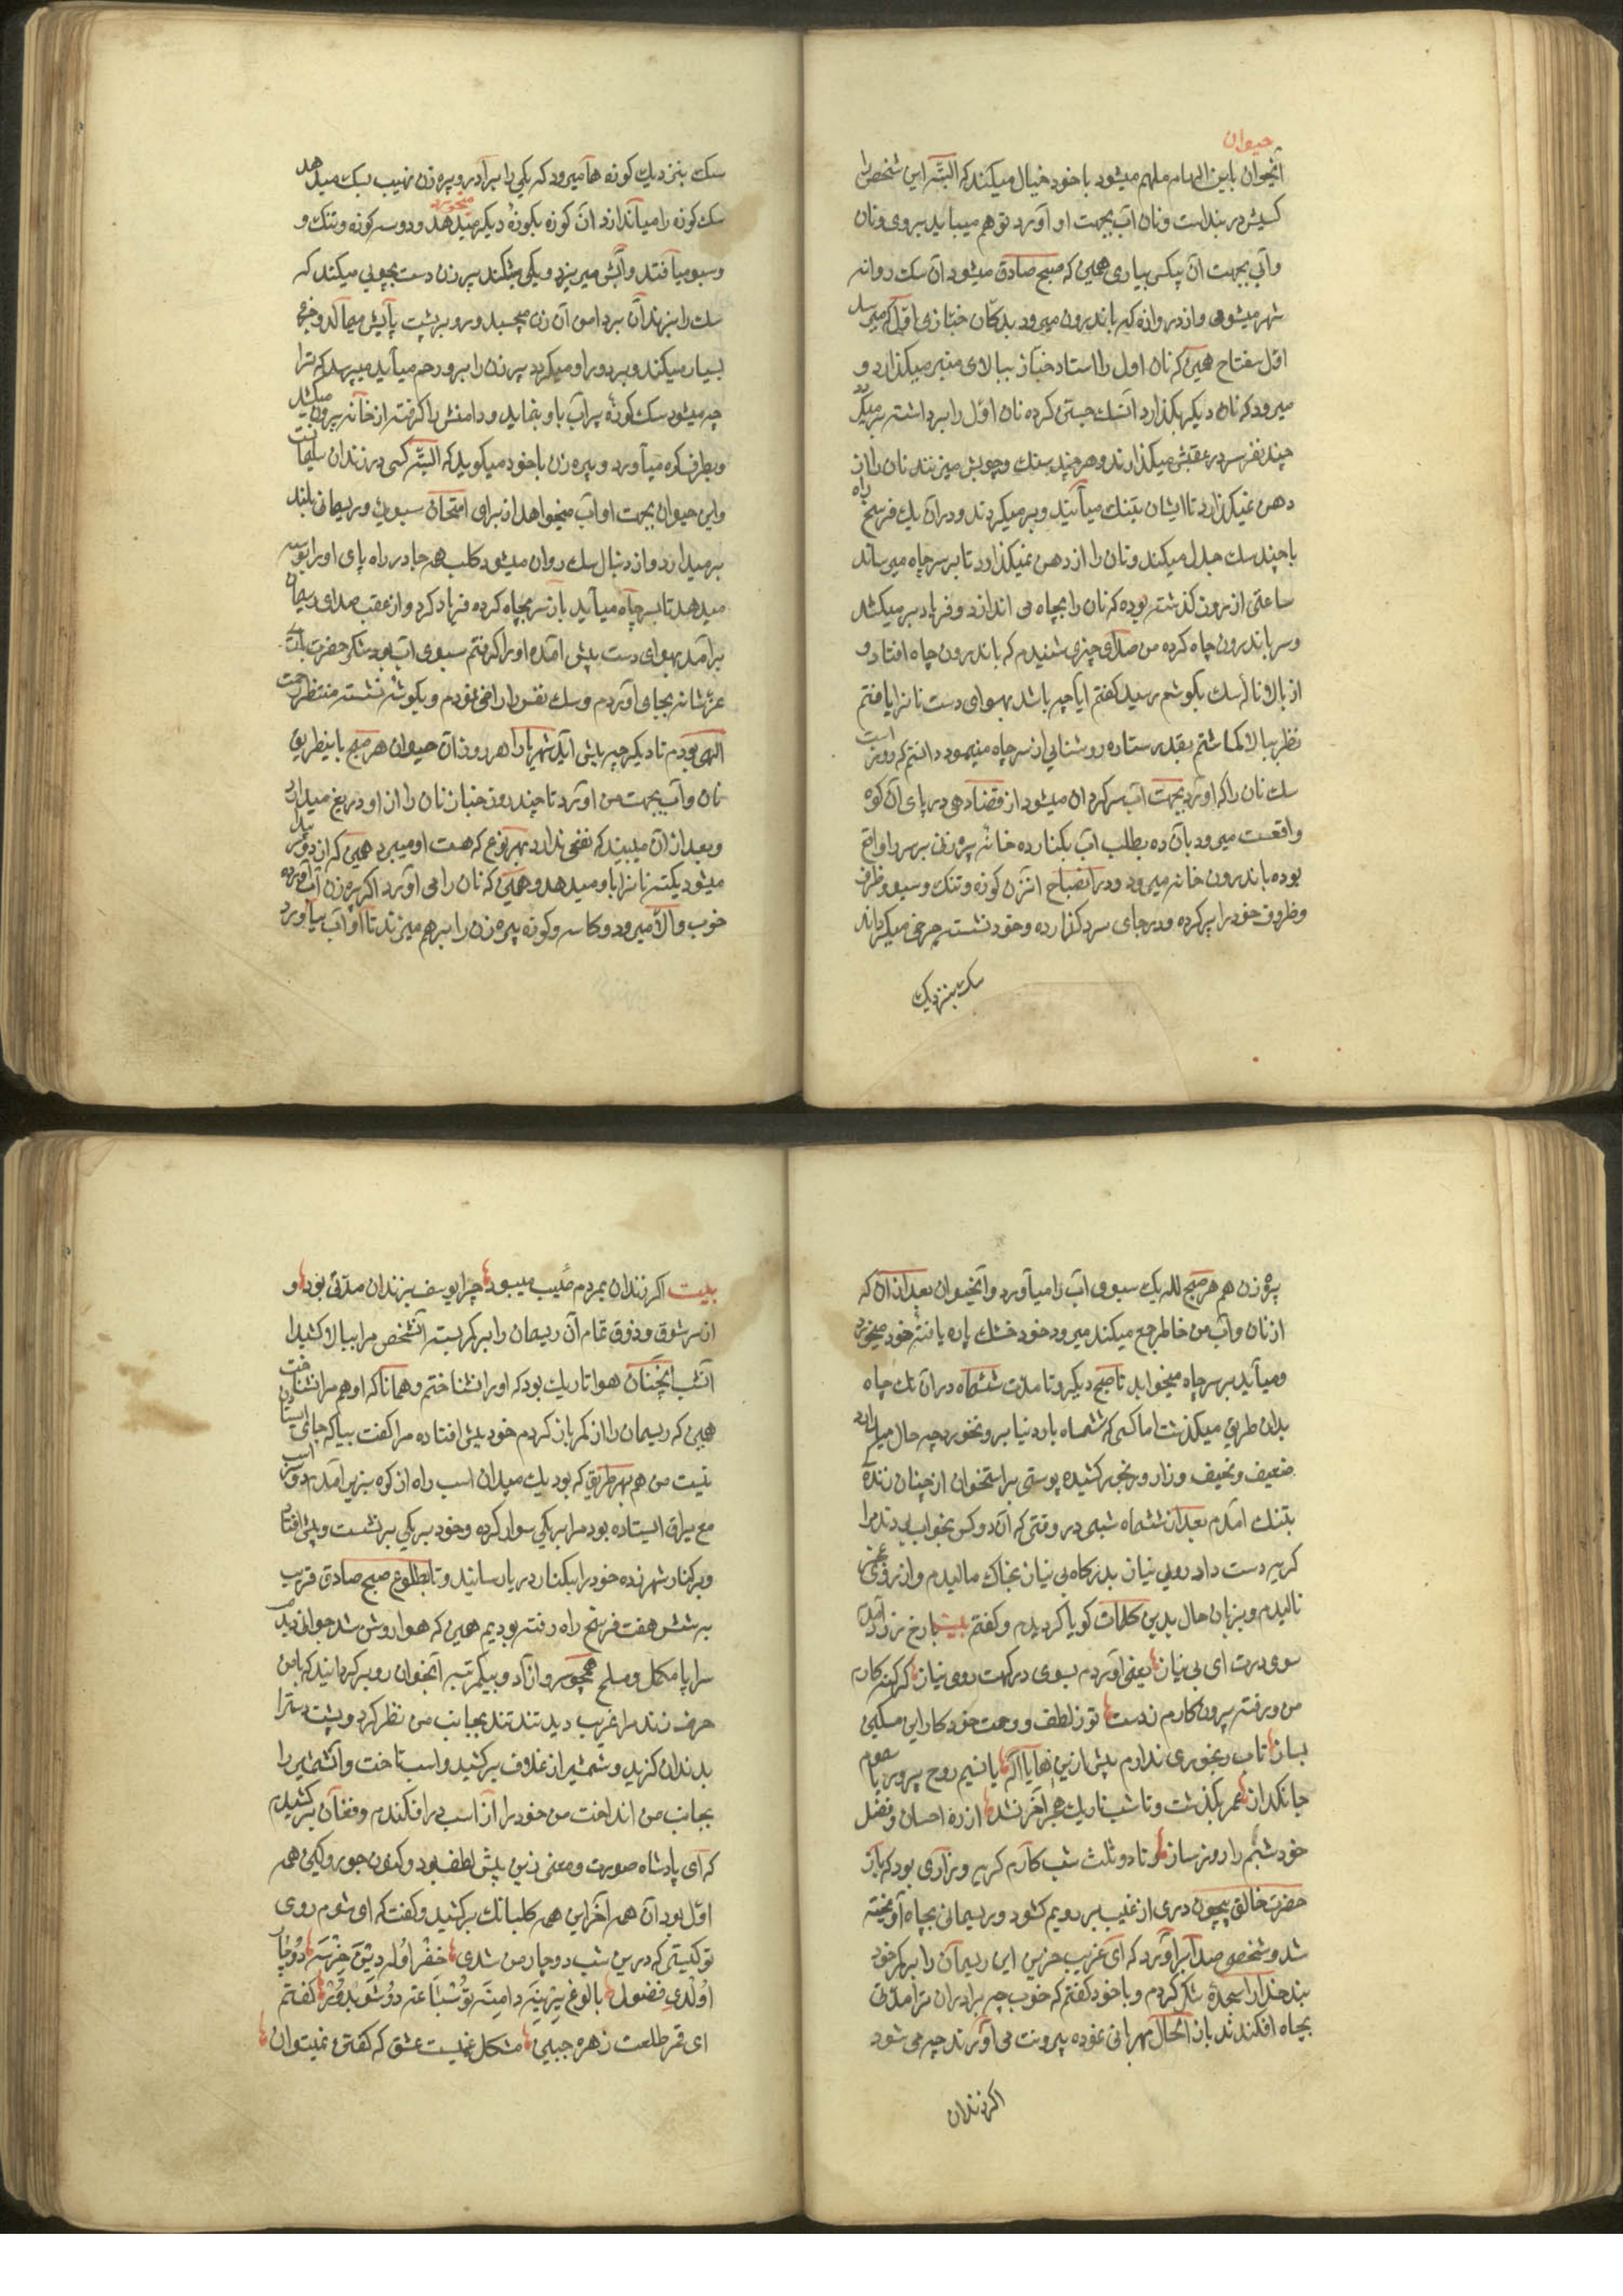 حیوان
آنحیوان باین الهام ملهم میشود با خود خیال میکند که البته این شخص را
کسیش در بند است ونان آب بجهت او آورد تو هم میباید بروی ونان
وآبی بجهت آن بیکس بیاری همین که صبح صادق میشود آن سک روانه
شهر میشود واز دروازه که باندرون میرود بدکان خبازی اول که میرسد
اول مفتاح همین که نان اول را استاد خباز ببالای منبر میکذارد و
میرود که نان دیکر بکذارد آنسک جستی کرده نان اول را برداشته برمیکردد
چند نفر سر در عقبش میکذارند وهر چند بسنک وچوبش میزنند نان را از
دهن نمیکذارد تا ایشان بتنک میآیند وبرمیکردند ودر آن یک فرسخ راه
با چند سک جدل میکند ونان را از دهن نمیکذارد تا بر سر چاه میرساند
ساعتی از روز کذشته بوده که نان را بچاه می اندازد وفریاد برمیکشد
وسر باندرون چاه کرده من صدای چیزی شنیدم که باندرون چاه افتاد و
از بالا نالهٔ سک بکوشم رسید کفتم ایا چه باشد بهوای دست نانرا یافتم
نظر ببالا کماشتم بقدر ستاره روشنایی از سر چاه مینمود دانستم که روز است
سک نان را که آورد بجهت آب سرکردان میشود از قضا دهی در پای آن کوه
واقعست میرود بآن ده بطلب آب بکنار ده خانه پیرزنی بر سر راه واقع
بوده باندرون خانه میرود ودر آنصباح آنزن کوزه وتنک وسبو وظرف
وظروف خود را پر کرده ودر جای سرد کذارده وخود نشسته چرخی میکرداند
سک بنزدیک
سک بنزدیک کوزه ها میرود که یکی را برآورد پیره زن نهیب بسک میدهد
سک کوزه را میآندازد آن کوزه بکوزهٔ دیکر میخورد ودو سه کوزه وتنک و
وسبو میافتد وآبش میریزد ویکی میشکند پیرزن دست بچوبی میکند که
سک را بزند آن بر دامن آن زن میچسبد ورو بر پشت پایش میمالد وعجز
بسیار میکند وبر دور او میکردد پیرزن را برو رحم میآید میپرسد که ترا
چه میشود سک کوزه پر آب باو بنماید ودامنش را کرفته از خانه بیرون میکشد
وبطرف کوه میآورد وپیره زن با خود میکوید که البته کسی در زندان سلیمانست
واین حیوان بجهت او آب میخواهد از برای امتحان سبوی وریسمان بلند
برمیدارد واز دنبال سک روان میشود کلب هر جا در راه پای او را بوسه
میدهد تا بسر چاه میآید باز سر بچاه کرده فریاد کرد واز عقب صدای ریسمان
برآمد بهوای دست پیش آمده او را کرفتم سبوی آب بود شکر حضرت باری
عزشانه بجای آوردم وسک نفس را راضی نمودم وبکوشهٔ نشسته منتظر رحمت
الهی بودم تا دیکر چه پیش آید شهریارا هر روز آن حیوان هر صبح باینطریق
نان وآب بجهت من آورد تا چند روز خباز نان را از او دریغ میدارد
وبعد از آن میبیند که نفعی ندارد بهر نوع که هست او میبرد همین که از دور پیدا
میشود یکته نانرا باو میدهد وهمین که نان را می آورد اکر پیره زن آب آورده
خوب والا میرود وکاسه وکوزه پیره زن را بر هم میزند تا او آب بیآورد
پیره زن هم هر صبح لله یک سبوی آب را میآورد وآنحیوان بعد از آن که
از نان وآب من خاطر جمع میکند میرود خود خشک پاره یافته خود میخورد
ومیآید بر سر چاه میخوابد تا صبح دیکر وتا مدت ششماه در آن تک چاه
بدان طریق میکذشت اما کسی که ششماه باد دنیا برو نخورد چه حال میدارد
ضعیف ونحیف وزار ورنجور کشیده پوستی بر استخوان از چنان زندکی
بتنک آمدم بعد از ششماه شبی در وقتی که آن دو کس بخواب بودند مرا
کریه دست داد روی نیاز بدرکاه بی نیاز بخاک مالیدم واز روی عجز
نالیدم وبزبان حال بدین کلمات کویا کردیدم وکفتم بیت با رخ زرد آمدم
سوی درت ای بی نیاز یعنی آوردم بسوی درکهت روی نیاز کر کنه کارم
من ورفته بیرون کارم ز دست تو ز لطف ورحمت خود کار این مسکین
بساز تاب رنجوری ندارم پیش ازین تنها یا اکه یا نسیم روح پرور یا سموم
جانکداز عمر بکذشت وتا شب تاریک هجر آخر نشد از ره احسان وفضل
خود شبم را روز ساز وتا دو ثلث شب کارم کریه وزاری بود که باز
حضرت خالق بیچون دری از غیب بر رویم کشود وریسمانی بچاه آویخته
شد وشخصی صدا برآورد که ای غریب حزین این ریسمان را بر کمر خود
بند خدا را سجدهٔ شکر کردم وبا خود کفتم که خوب چه برادران ترا مدتی
بچاه افکندند باز الحال مهربانی نموده بیرونت می آورند چه می شود
اکر زندان
بیت اکر زندان بمردم عیب میبود چرا یوسف بزندان مدتی بود و
از سر شوق وذوق تمام آن ریسمان را بر کمر بسته آنشخص مرا ببالا کشید اما
آنشب آنچنان هوا تاریک بود که او را نشناختم وهمانا که او هم مرا نشناخت
همین که ریسمان را از کمر باز کردم خود پیش افتاده مرا کفت بیا که جای ایستادن
نیست من هم بهر طریقی که بود یک میدان اسب راه از کوه بزیر آمدم دو اسب
مع یراق ایستاده بود مرا بر یکی سوار کرده وخود بر یکی برنشست وپیش افتاد
وبر کنار شهر زده خود را بکنار دریا رسانید وتا بطلوع صبح صادق قریب
به شش هفت فرسخ راه رفته بودیم همین که هوا روشن شد جوانی دیدم
سراپا مکمل ومسلح همچو سرو آزاد وبیکمرتبه آنجوان رو برکردانید که با من
حرف زند مرا غریب دید تند تند بجانب من نظر کرد وپشت دست را
بدندان کزید وشمشیر از غلاف برکشید واسب تاخت وآنشمشیر را
بجانب من انداخت من خود را از آن اسب برافکندم وفغان برکشیدم
که ای پادشاه صورت ومعنی زین پیش لطف بود وکنون جور وکین همه
اول بود آن همه آخر این همه کلبانک برکشید وکفت که ای شوم روی
تو کیستی که درین شب دوچار من شدی
ای قمر طلعت زهره جبین مشکل غمیست عشق که کفتن نمیتوان